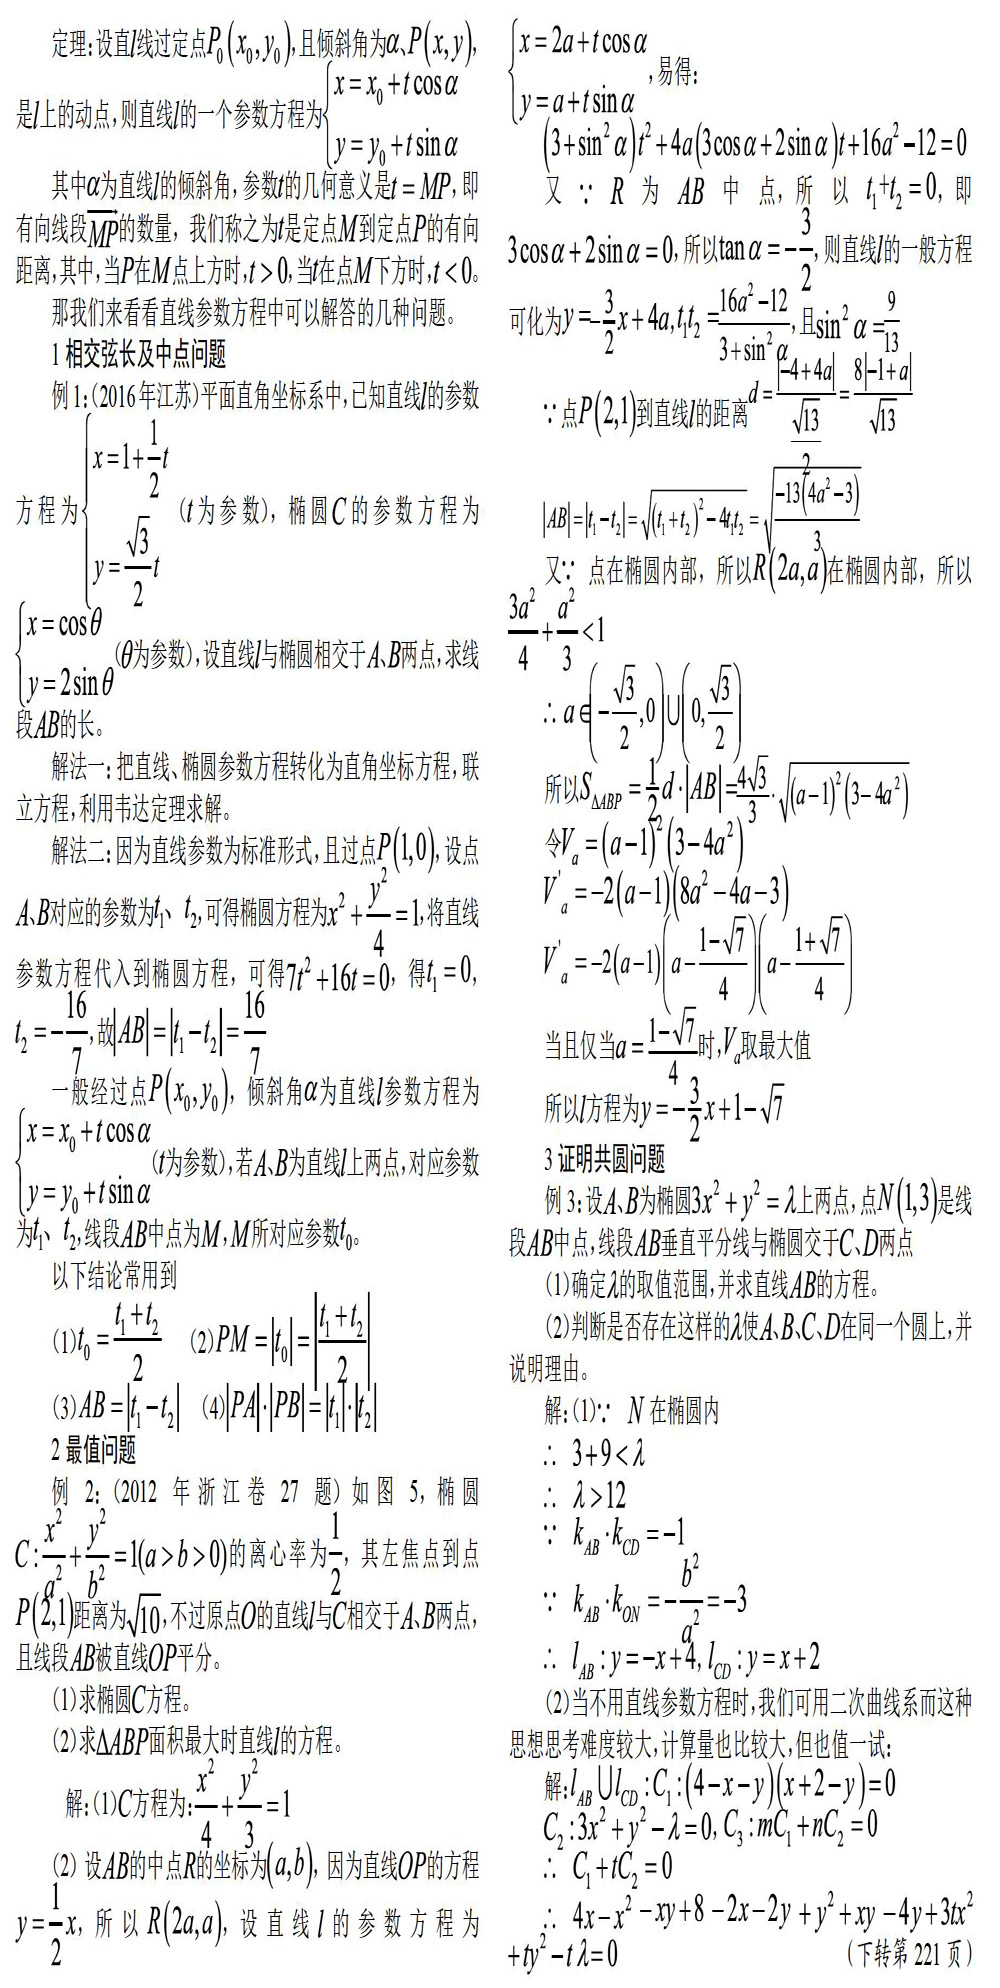 定理:设直l线过定点P₀(x₀,y₀),且倾斜角为α、P(x,y),
是l上的动点,则直线l的一个参数方程为{x=x₀+tcosα
y=y₀+tsinα
其中α为直线l的倾斜角,参数t的几何意义是t=MP,即
有向线段MP的数量,我们称之为t是定点M到定点P的有向
距离,其中,当P在M点上方时,t>0,当t在点M下方时,t<0。
那我们来看看直线参数方程中可以解答的几种问题。
1 相交弦长及中点问题
例1:(2016年江苏)平面直角坐标系中,已知直线l的参数
方程为{x=1+1/2 t
y=√3/2 t (t为参数),椭圆C的参数方程为
{x=cosθ
y=2sinθ (θ为参数),设直线l与椭圆相交于A、B两点,求线
段AB的长。
解法一:把直线、椭圆参数方程转化为直角坐标方程,联
立方程,利用韦达定理求解。
解法二:因为直线参数为标准形式,且过点P(1,0),设点
A、B对应的参数为t₁、t₂,可得椭圆方程为x²+y²/4=1,将直线
参数方程代入到椭圆方程,可得7t²+16t=0,得t₁=0,
t₂=-16/7,故|AB|=|t₁-t₂|=16/7
一般经过点P(x₀,y₀),倾斜角α为直线l参数方程为
{x=x₀+tcosα
y=y₀+tsinα (t为参数),若A、B为直线l上两点,对应参数
为t₁、t₂,线段AB中点为M,M所对应参数t₀。
以下结论常用到
(1)t₀=(t₁+t₂)/2 (2)PM=|t₀|=|(t₁+t₂)/2|
(3)AB=|t₁-t₂| (4)|PA|·|PB|=|t₁|·|t₂|
2 最值问题
例2:(2012年浙江卷27题)如图5,椭圆
C:x²/a²+y²/b²=1(a>b>0)的离心率为1/2,其左焦点到点
P(2,1)距离为√10,不过原点O的直线l与C相交于A、B两点,
且线段AB被直线OP平分。
(1)求椭圆C方程。
(2)求ΔABP面积最大时直线l的方程。
解:(1)C方程为:x²/4+y²/3=1
(2)设AB的中点R的坐标为(a,b),因为直线OP的方程
y=1/2 x,所以R(2a,a),设直线l的参数方程为
{x=2a+tcosα
y=a+tsinα ,易得:
(3+sin²α)t²+4a(3cosα+2sinα)t+16a²-12=0
又∵R为AB中点,所以t₁+t₂=0,即
3cosα+2sinα=0,所以tanα=-3/2,则直线l的一般方程
可化为y=-3/2 x+4a,t₁t₂=(16a²-12)/(3+sin²α),且sin²α=9/13
∵点P(2,1)到直线l的距离d=|-4+4a|/(√13/2)=8|-1+a|/√13
|AB|=|t₁-t₂|=√((t₁+t₂)²-4t₁t₂)=√(-13(4a²-3)/3)
又∵ 点在椭圆内部,所以R(2a,a)在椭圆内部,所以
3a²/4+a²/3<1
∴a∈(-√3/2,0)∪(0,√3/2)
所以S_ΔABP=1/2 d·|AB|=4√3/3·√((a-1)²(3-4a²))
令Vₐ=(a-1)²(3-4a²)
V'ₐ=-2(a-1)(8a²-4a-3)
V'ₐ=-2(a-1)(a-(1-√7)/4)(a-(1+√7)/4)
当且仅当a=(1-√7)/4时,Vₐ取最大值
所以l方程为y=-3/2 x+1-√7
3 证明共圆问题
例3:设A、B为椭圆3x²+y²=λ上两点,点N(1,3)是线
段AB中点,线段AB垂直平分线与椭圆交于C、D两点
(1)确定λ的取值范围,并求直线AB的方程。
(2)判断是否存在这样的λ使A、B、C、D在同一个圆上,并
说明理由。
解:(1)∵ N在椭圆内
∴ 3+9<λ
∴ λ>12
∵ k_AB·k_CD=-1
∵ k_AB·k_ON=-b²/a²=-3
∴ l_AB:y=-x+4,l_CD:y=x+2
(2)当不用直线参数方程时,我们可用二次曲线系而这种
思想思考难度较大,计算量也比较大,但也值一试:
解:l_AB∪l_CD:C₁:(4-x-y)(x+2-y)=0
C₂:3x²+y²-λ=0,C₃:mC₁+nC₂=0
∴ C₁+tC₂=0
∴ 4x-x²-xy+8-2x-2y+y²+xy-4y+3tx²
+ty²-tλ=0 (下转第221页)